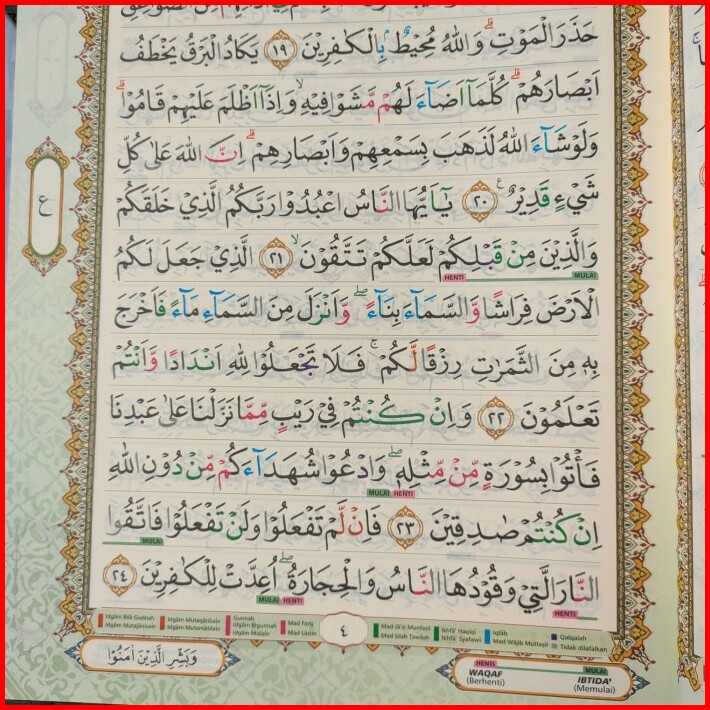 حَذَرَ الْمَوْتِۗ وَاللّٰهُ مُحِيْطٌۢ بِالْكٰفِرِيْنَ ١٩ يَكَادُ الْبَرْقُ يَخْطَفُ
اَبْصَارَهُمْۗ كُلَّمَآ اَضَاۤءَ لَهُمْ مَّشَوْا فِيْهِۙ وَاِذَآ اَظْلَمَ عَلَيْهِمْ قَامُوْاۗ
وَلَوْ شَاۤءَ اللّٰهُ لَذَهَبَ بِسَمْعِهِمْ وَاَبْصَارِهِمْۗ اِنَّ اللّٰهَ عَلٰى كُلِّ
شَيْءٍ قَدِيْرٌࣖ ٢٠ يٰٓاَيُّهَا النَّاسُ اعْبُدُوْا رَبَّكُمُ الَّذِيْ خَلَقَكُمْ
وَالَّذِيْنَ مِنْ قَبْلِكُمْ لَعَلَّكُمْ تَتَّقُوْنَۙ ٢١ الَّذِيْ جَعَلَ لَكُمُ
HENTI MULAI
الْاَرْضَ فِرَاشًا وَّالسَّمَاۤءَ بِنَاۤءًۖ وَّاَنْزَلَ مِنَ السَّمَاۤءِ مَاۤءً فَاَخْرَجَ
بِهٖ مِنَ الثَّمَرٰتِ رِزْقًا لَّكُمْۚ فَلَا تَجْعَلُوْا لِلّٰهِ اَنْدَادًا وَّاَنْتُمْ
تَعْلَمُوْنَ ٢٢ وَاِنْ كُنْتُمْ فِيْ رَيْبٍ مِّمَّا نَزَّلْنَا عَلٰى عَبْدِنَا
فَأْتُوْا بِسُوْرَةٍ مِّنْ مِّثْلِهٖۖ وَادْعُوْا شُهَدَاۤءَكُمْ مِّنْ دُوْنِ اللّٰهِ
MULAI HENTI
اِنْ كُنْتُمْ صٰدِقِيْنَ ٢٣ فَاِنْ لَّمْ تَفْعَلُوْا وَلَنْ تَفْعَلُوْا فَاتَّقُوا
MULAI
النَّارَ الَّتِيْ وَقُوْدُهَا النَّاسُ وَالْحِجَارَةُۖ اُعِدَّتْ لِلْكٰفِرِيْنَ ٢٤
MULAI HENTI HENTI
ع
Idgām Bilā Gunnah
Idgām Mutajānisain
Idgām Mutaqāribain
Idgām Mutamāṡilain
Gunnah
Idgām Bigunnah
Idgām Mislain
Mad Farq
Mad Lāzim
٤
Mad Jā'iz Munfasil
Mad Silah Tawilah
Ikhfā' Haqiqi
Ikhfā' Syafawi
Iqlāb
Mad Wājib Muttasil
Qalqalah
Tidak dilafalkan
وَبَشِّرِ الَّذِيْنَ اٰمَنُوْا
HENTI MULAI
WAQAF
(Berhenti)
IBTIDA'
(Memulai)